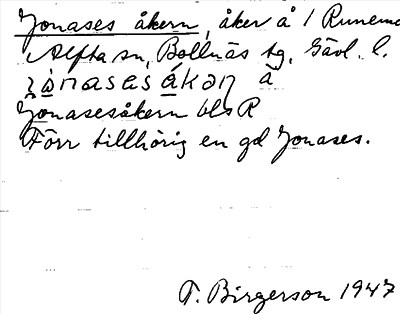 Jonases åkern, åker å 1 Runemo
Alfta sn, Bollnäs tg, Gävl. l.
Jonasesåkern bls R
Förr tillhörig en gd Jonases.
T. Birgerson 1947